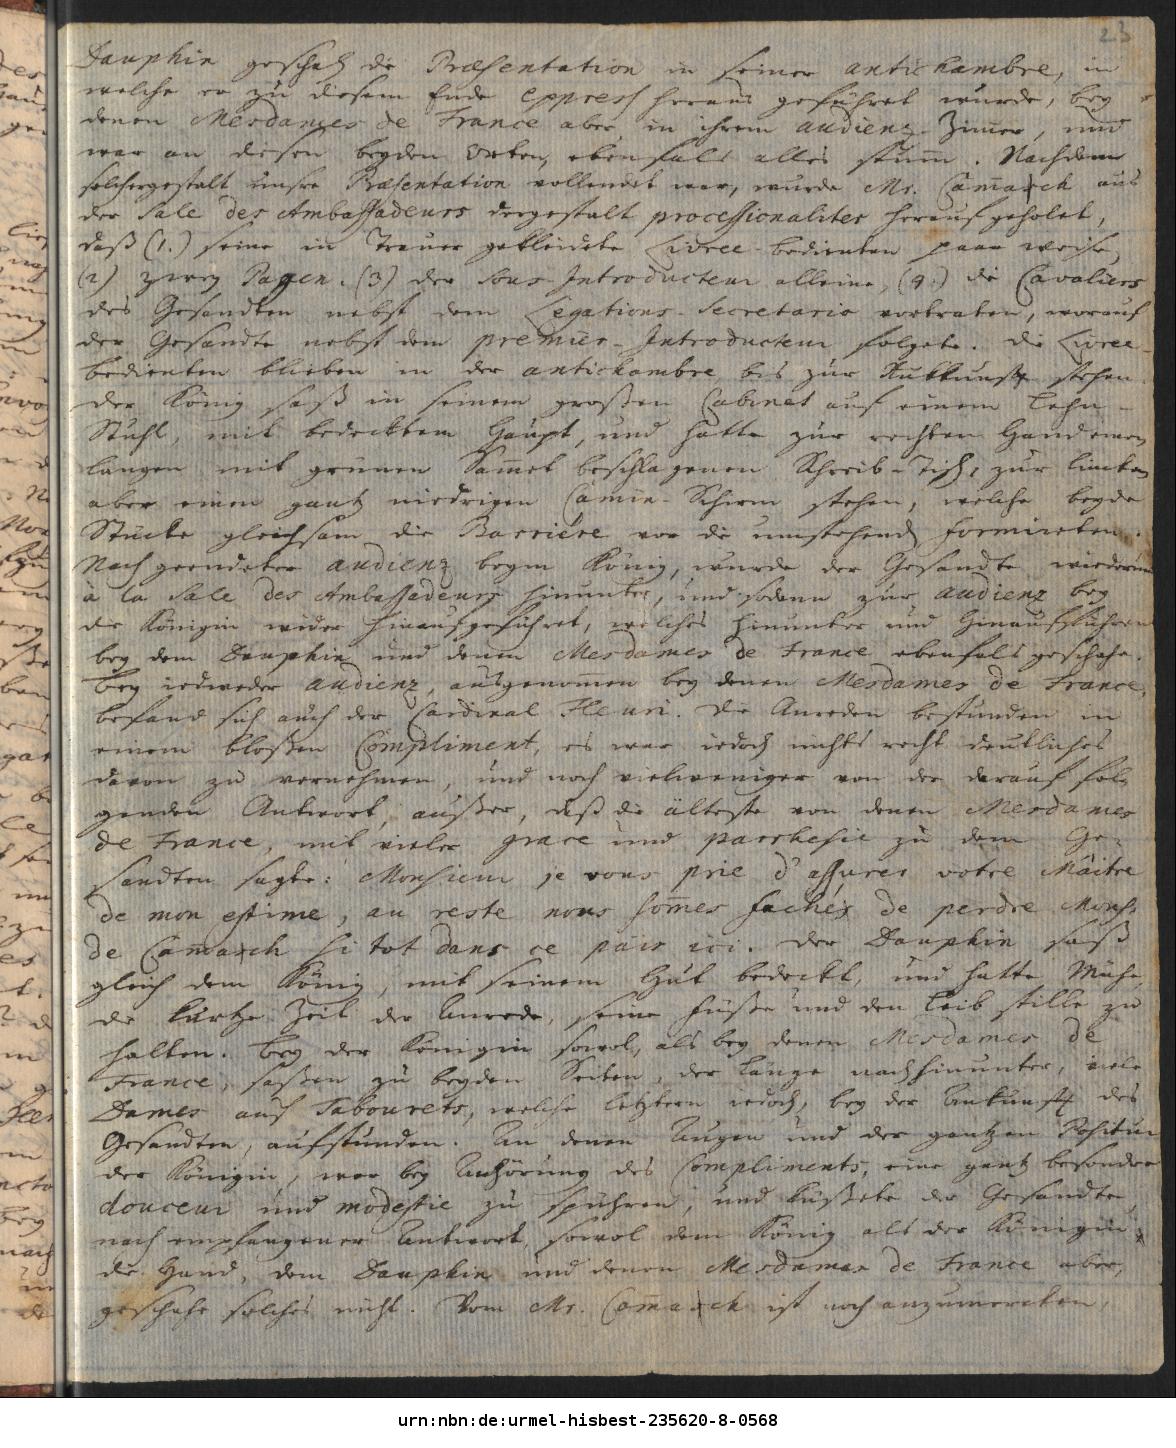 23
Dauphin geschah die Præsentation in seiner antichambre, in
welche er zu diesem Ende express heraus geführet wurde, bey
denen Mesdames de France aber, in ihrem audienz-Zim̄er, und
war an diesen beyden Orten, ebenfals alles stum̄. Nachdem
solchergestalt unsre Præsentation vollendet war, wurde Mr. Cam̄arch aus
der Sale des Ambassadeurs dergestalt processionaliter herauf geholet,
daß (1.) seine in Trauer gekleidete Livree-bedienten paar weise,
(2) zwey Pagen. (3) der Sous-Introducteur alleine, (4.) die Cavaliers
des Gesandten nebst dem Legations-Secretario vortraten, worauf
der Gesandte nebst dem premier-Introducteur folgete. Die Livree-
bedienten blieben in der antichambre bis zur Rukkunft stehen.
Der König saß in seinem großen Cabinet auf einem Lehn-
Stuhl, mit bedecktem Haupt, und hatte zur rechten Hand einen
langen mit grünen Sam̄et beschlagenen Schreib-Tisch, zur lincken
aber einen gantz niedrigen Camin-Schirm stehen, welche beyde
Stücke gleichsam die Barriére vor die umstehende formireten.
Nach geendeter audienz beym König, wurde der Gesandte wiederum
à la Sale des Ambassadeurs hinunter, und sodenn zur audienz bey
der Königin wider hinaufgeführet, welches Hinunter und Hinaufführen
bey dem Dauphin und denen Mesdames de France ebenfals geschahe.
Bey iedweder audienz, ausgenom̄en bey denen Mesdames de France,
befand sich auch der Cardinal Fleuri. Die Anreden bestunden in
einem bloßen Compliment, es war iedoch nichts recht deutliches
davon zu vernehmen, und noch vielweniger von der darauf fol-
genden Antwort, außer, daß die älteste von denen Mesdames
de France, mit vieler grace und parrhesie zu dem Ge-
sandten sagte: Monsieur je vous prie d'assurer votre Mâitre
de mon estime, au reste nous som̄es fachés de perdre Monsr.
de Cam̄arch si tot dans ce päis ici. Der Dauphin saß
gleich dem König, mit seinem Hut bedeckt, und hatte Mühe,
die kurtze Zeit der Anrede, seine Füße und den Leib stille zu
halten. Bey der Königin sowol, als bey denen Mesdames de
France, saßen zu beyden Seiten, der Länge nach hinunter, viele
Dames auf Tabourets, welche letztern iedoch, bey der Ankunft des
Gesandten, aufstunden. An denen Augen und der gantzen Positur
der Königin, war bey Anhörung des Compliments, eine gantz besondere
douceur und modestie zu spühren, und küßete der Gesandte,
nach empfangener Antwort, sowol dem König als der Königin
die Hand, dem Dauphin und denen Mesdames de France aber,
geschahe solches nicht. Vom Mr. Cam̄arch ist noch anzumercken,
urn:nbn:de:urmel-hisbest-235620-8-0568